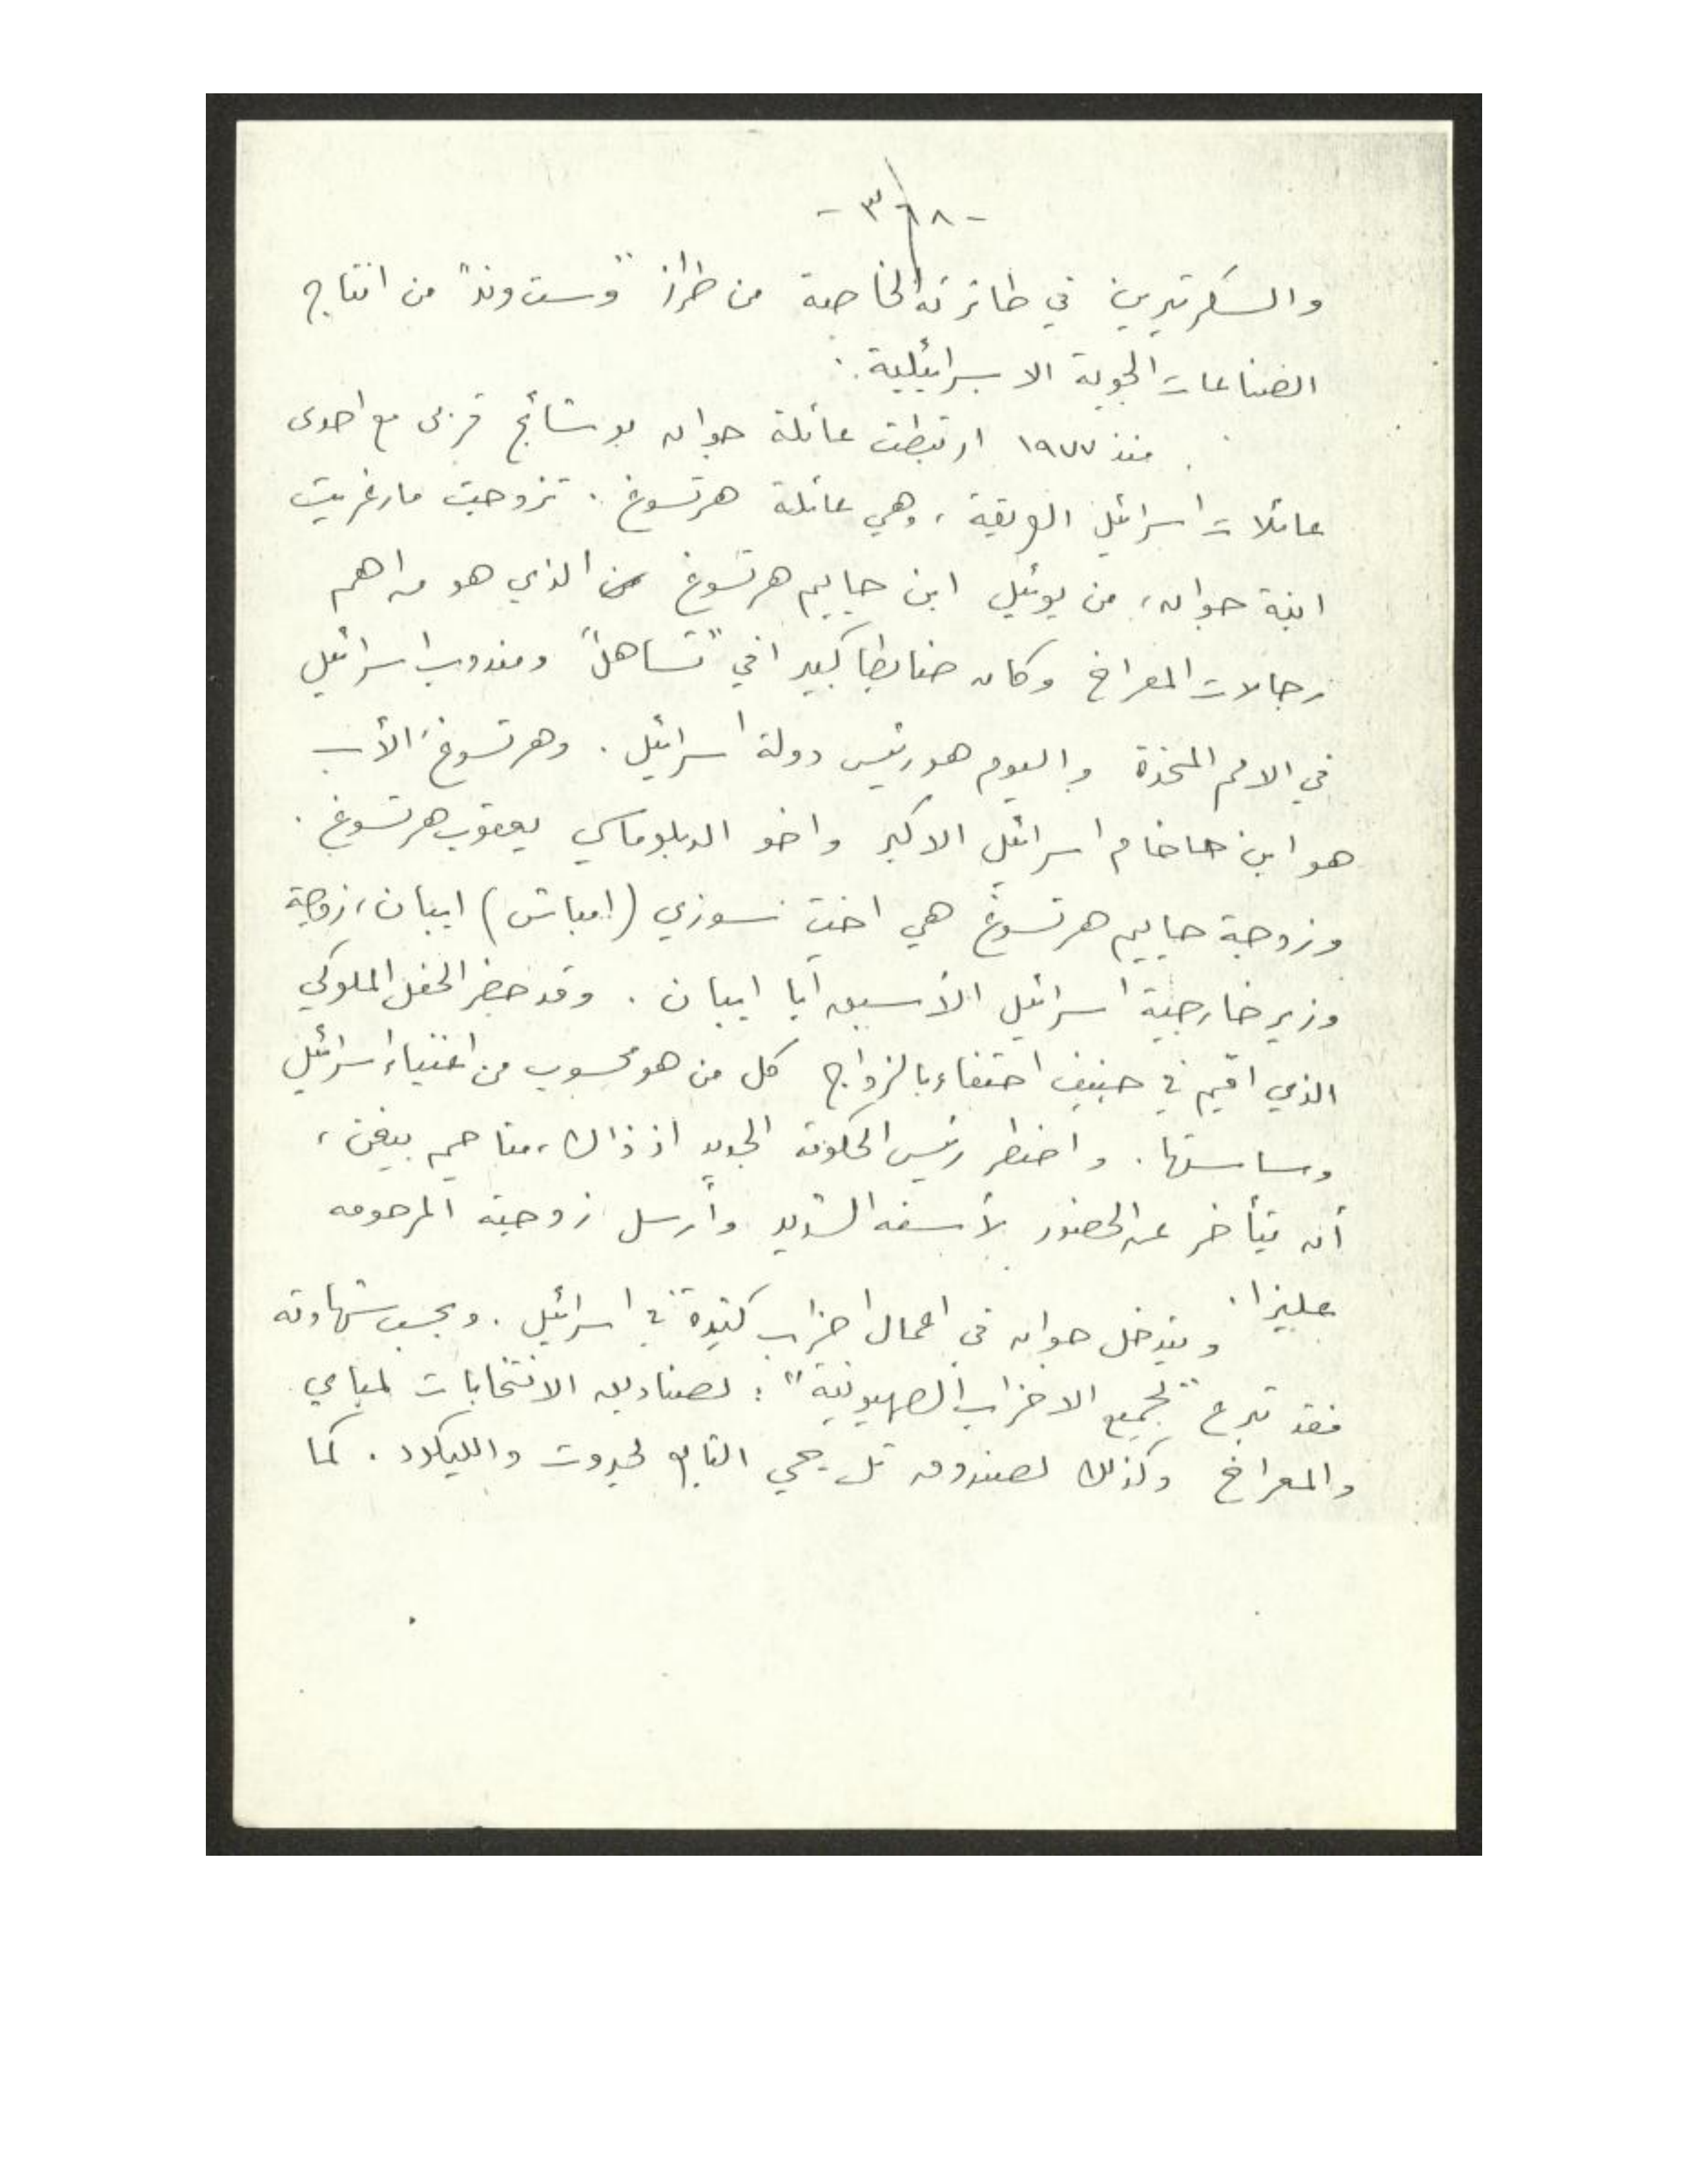 - ٣٦٨ -
والسكرتيرين في طائرته الخاصة من طراز "وست وند" من انتاج
الصناعات الجوية الاسرائيلية.
منذ ١٩٧٧ ارتبطت عائلة جوان بوشائج قربى مع احدى
عائلات اسرائيل العريقة، وهي عائلة هرتسوغ. تزوجت مارغريت
ابنة جوان، من يوئيل ابن حاييم هرتسوغ الذي هو من اهم
رجالات المعراخ وكان ضابطا كبيرا في "تساهل" ومندوب اسرائيل
في الامم المتحدة واليوم هو رئيس دولة اسرائيل. وهرتسوغ الأب
هو ابن حاخام اسرائيل الاكبر واخو الدبلوماسي يعقوب هرتسوغ.
وزوجة حاييم هرتسوغ هي اخت سوزي (امباش) ايبان، زوجة
وزير خارجية اسرائيل الأسبق أبا ايبان. وقد حضر الحفل الملوكي
الذي اقيم في جنيف احتفاء بالزواج كل من هو محسوب من اغنياء اسرائيل
وساستها. واضطر رئيس الحكومة الجديد اذ ذاك، مناحيم بيغن،
أن يتأخر عن الحضور لأسفه الشديد وأرسل زوجته المرحومه
عليزا.
ويتدخل جوان في اعمال احزاب كثيرة في اسرائيل. وبحسب شهادته
فقد تبرع "لجميع الاحزاب الصهيونية": لصناديق الانتخابات لمباي
والمعراخ وكذلك لصندوق تل حي التابع لحيروت والليكود. كما